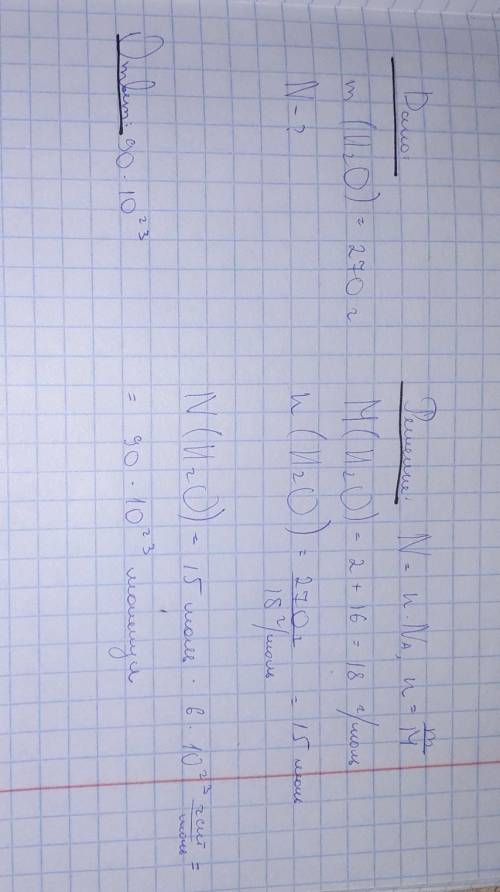 Дано:
m (H₂O) = 270 г
N - ?
Решение: N = n · Nₐ, n = m/M
M(H₂O) = 2 + 16 = 18 г/моль
n (H₂O) = 270 г / 18 г/моль = 15 моль
N (H₂O) = 15 моль · 6 · 10²³ =
= 90 · 10²³ молекул
Ответ: 90 · 10²³